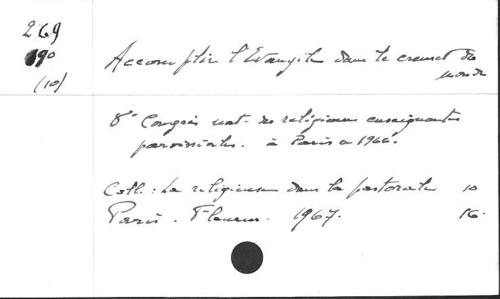 269
190
(10)
Accomplir l'Evangile dans le creuset du
monde
8e Congrès nat. des religieuses enseignantes
paroissiales. à Paris en 1966.
Coll.: La religieuse dans la pastorale 10
Paris. Fleurus. 1967. 16.